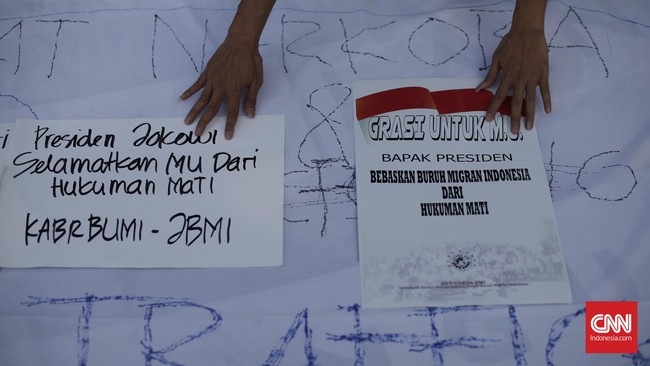 AT NARKOBA
Presiden Jokowi
Selamatkan MU Dari
Hukuman MATI
KABAR BUMI - JBMI
GRASI UNTUK M.U.
BAPAK PRESIDEN
BEBASKAN BURUH MIGRAN INDONESIA
DARI
HUKUMAN MATI
TRAFFIC
CNN
Indonesia.com